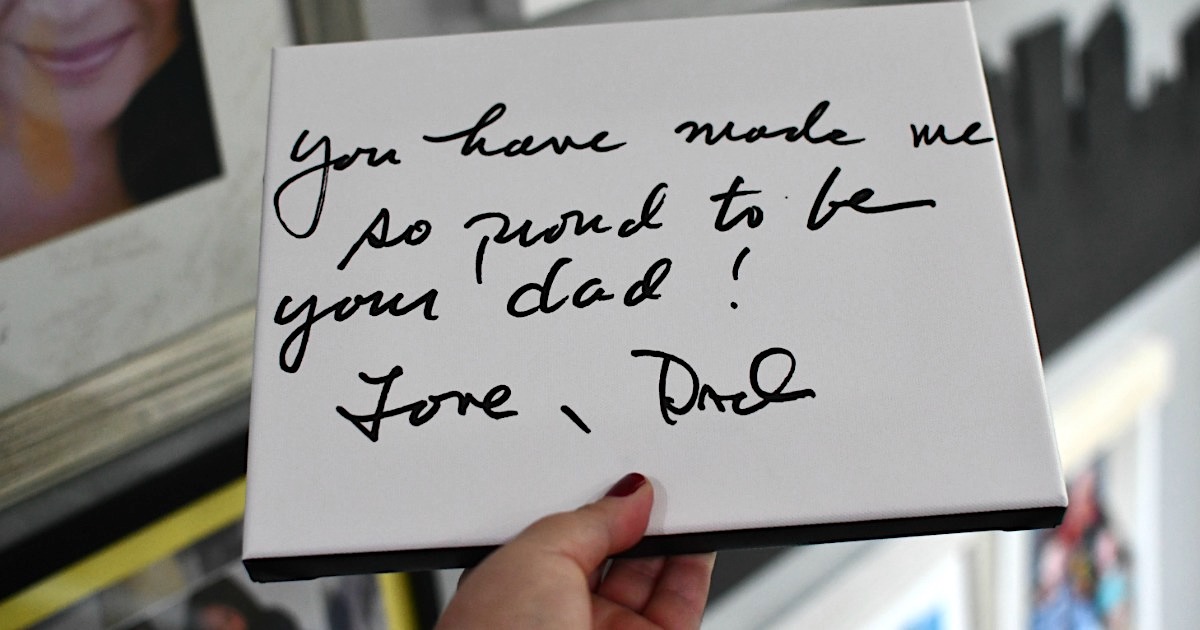 you have made me
so proud to be
your dad !
Love, Dad